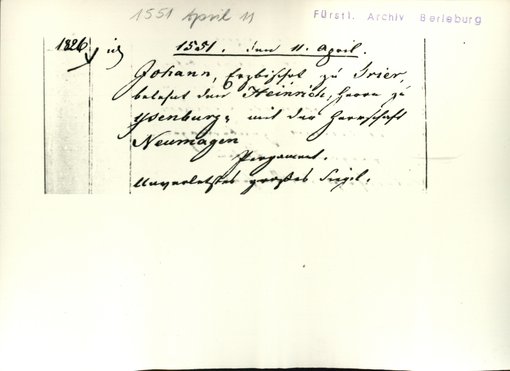 1551 April 11
Fürstl. Archiv Berleburg
1826
1551. den 11. April.
Johann, Erzbischof zu Trier,
belehnt den Heinrich, Herrn zu
Ysenburg, mit der Herrschaft
Neumagen
Pergament.
Unverletztes großes Siegel.